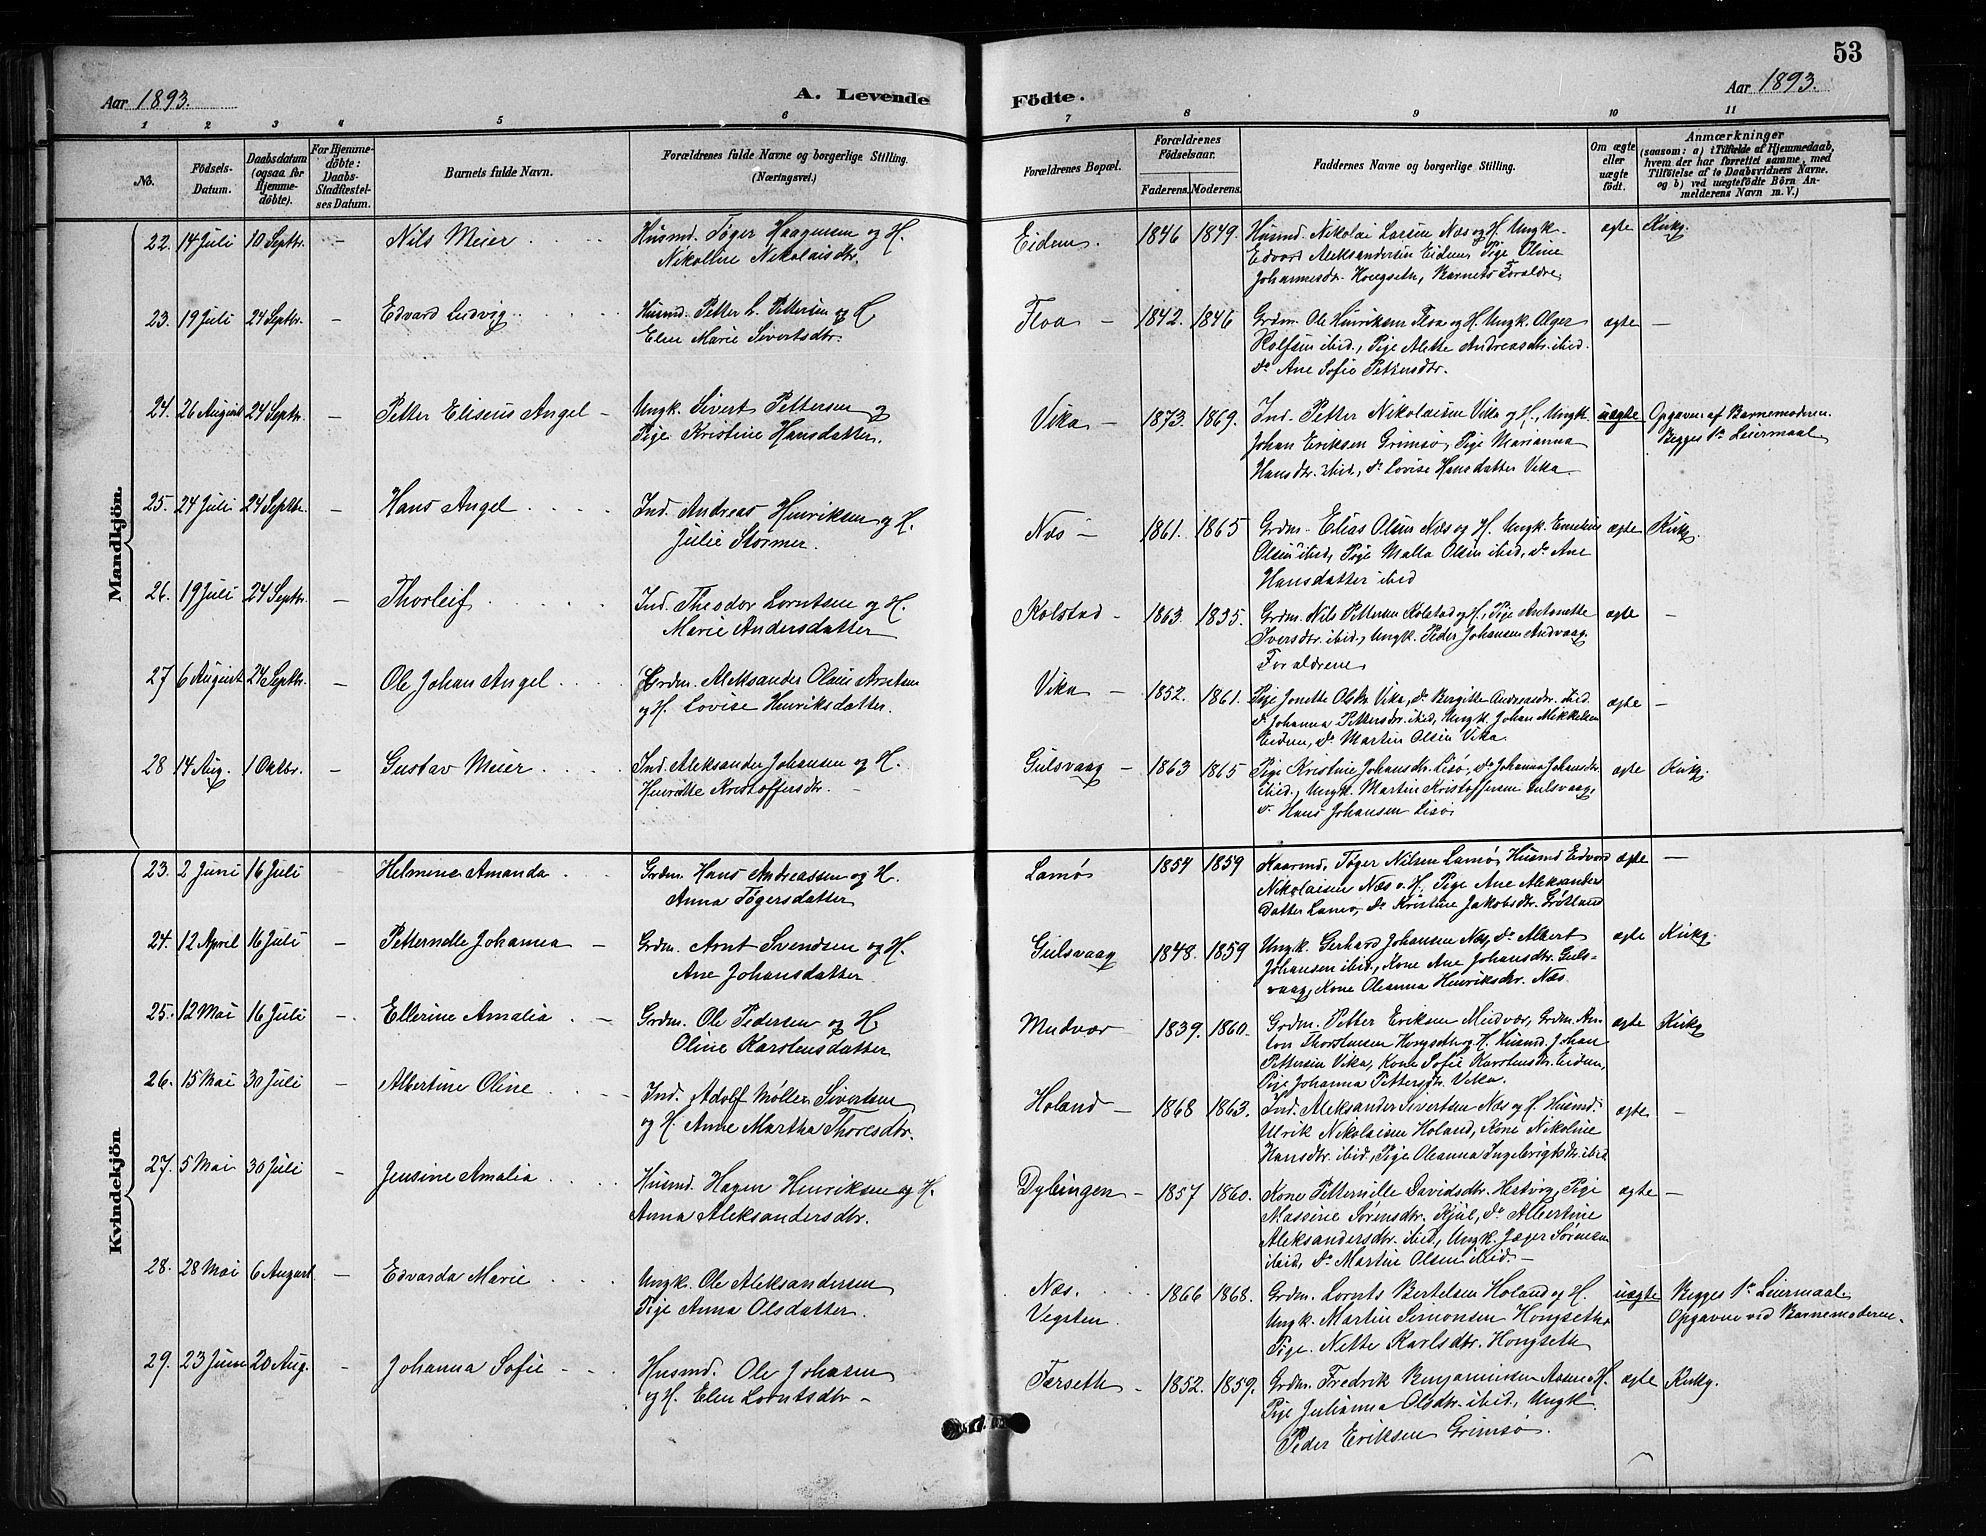 53
Aar 1893.
A. Levende Födte.
Aar 1893.
1 2 3 4 5 6 7 8 9 10 11
No.
Födsels-Datum.
Daabsdatum (ogsaa for Hjemmedöbte).
For Hjemmedöbte: Daabs-Stadfestelses Datum.
Barnets fulde Navn.
Forældrenes fulde Navne og borgerlige Stilling.
(Næringsvei.)
Forældrenes Bopæl.
Forældrenes Födselsaar.
Faderens. Moderens.
Faddernes Navne og borgerlige Stilling.
Om ægte eller uægte födt.
Anmærkninger
(saasom: a) i Tilfælde af Hjemmedaab, hvem der har forrettet samme, med Tilföielse af to Daabsvidners Navne. og b) ved uægtefödte Börn Anmelderens Navn m. V.)
Mandkjön.
22. 14 Juli 10 Septbr. – Nils Meier Husmd. Töger Haagensen og H. Nikoline Nikolaisdtr. Eidem. 1846 1849. Husmd. Nikolai Larsen Næs og H. Ungk.
Edvard Aleksandersen Eidem, Pige Oline
Johannesdtr. Hongseth, Barnets Forældre
ægte Kirkg.
23. 19 Juli 24 Septbr. – Edvard Ludvig Husmd. Petter L. Pettersen og H
Elen Marie Sivertsdtr. Floa – 1842. 1846 Grdm. Ole Henriksen Floa og H. Ungk. Olger
Rolfsen ibid., Pige Alette Andreasdtr. ibid.
do Ane Sofie Petersdtr.
ægte –
24. 26 August 24 Septbr. – Petter Eliseus Angel – Ungk. Sivert Pettersen og
Pige Kristine Hansdatter. Vika – 1873. 1869. Ind. Petter Nikolaisen Vika og H., Ungk.
Johan Eriksen Grimsø, Pige Marianna
Hansdtr. ibid., do Lovise Hansdatter Vika
uægte Opgaven af Barnemoderen.
Begges 1ste Leiermaal
25. 24 Juli 24 Septbr. – Hans Angel Ind. Andreas Henriksen og H.
Julie Stormer. Næs – 1861. 1865 Grdm. Elias Olsen Næs og H. Ungk. Emelius
Olsen ibid, Pige Malla Olsen ibid, do Ane
Hansdatter ibid
ægte Kirkg.
26. 19 Juli 24 Septbr. – Thorleif Ind. Theodor Lorntsen og H.
Marie Andersdatter Kolstad – 1863. 1835. Grdm. Nils Pettersen Kolstad og H., Pige Antonette
Iversdtr. ibid., Ungk. Peder Johansen Andvaag
Forældrene
ægte –
27 6 August 24 Septbr. – Ole Johan Angel Grdm. Aleksander Olaus Arntsen
og H. Lovise Henriksdatter. Vika – 1852. 1861. Pige Jonette Olsdtr. Vika, do Bergitte Andreasdtr. ibid.
do Johanna Pettersdtr. ibid, Ungk. Johan Mikkelsen
Eidem, do Martin Olsen Vika.
ægte –
28 14 Aug. 1 Oktbr. – Gustav Meier Ind. Aleksander Johansen og H.
Henriette Kristoffersdtr. – Gulsvaag – 1863 1865 Pige Kristine Johansdtr. Lisø, do Johanna Johansdtr.
ibid., Ungk. Martin Kristoffersen Gulsvaag,
do Hans Johansen Lisø
ægte Kirkg.
Kvindekjön
23. 2 Juni 16 Juli – Helmine Amanda Grdm. Hans Andreassen og H.
Anna Tögersdatter Lamø 1854 1859 Kaarmd. Töger Nilsen Lamø, Husmd Edvard
Nikolaisen Næs o. H., Pige Ane Aleksanders
datter Lamø, do Kristine Jakobsdtr.
ægte –
24. 12 April 16 Juli – Petternelle Johanna – Grdm. Arnt Svendsen og H.
Ane Johansdatter. Gulsvaag 1848. 1859 Ungk. Gerhard Johansen Næs, do Albert
Johansen ibid., Kone Ane Johansdtr. Guls-
vaag, Kone Oleanna Henriksdtr. Næs.
ægte Kirkg.
25. 12 Mai 16 Juli – Ellerine Amalia – Grdm. Ole Pedersen og H
Oline Karstensdatter Mudvær 1839. 1860. Grdm. Petter Eriksen Mudvær, Grdm. An-
ton Thorstensen Hongseth og H. Husmd. Johan
Pettersen Vika, Kone Sofie Karstensdtr. Eidem,
Pige Johanna Pettersdtr. Vika.
ægte Kirkg
26. 15 Mai 30 Juli – Albertine Oline Ind. Adolf Møller Sivertsen
og H. Anne Martha Thoresdtr. Holand – 1868 1863. Ind. Aleksander Sivertsen Næs og H. Husmd.
Ulrik Nikolaisen Holand, Kone Nikoline
Hansdtr. ibid., Pige Oleanna Ingebrigtsdtr. ibid
ægte –
27. 5 Mai 30 Juli – Jensine Amalia Husmd. Hagen Henriksen og H.
Anna Aleksandersdtr. Dybingen – 1857 1860. Kone Petternille Davidsdtr. Hestvig, Pige
Massine Sørensdtr. Kjul, do Albertine
Aleksandersdtr. ibid, Ungk. Jæger Sørensen
ibid, do Martin Olsen ibid. –
ægte –
28. 28 Mai 6 August – Edvarda Marie Ungk. Ole Aleksandersen
Pige Anna Olsdatter. Næs.
Vegsten. 1866 1868. Grdm. Lornts Bertelsen Holand og H.
Ungk. Martin Simonsen Hongseth,
Pige. Nette Karlsdtr. Hongseth
uægte Begges 1ste Leiermaal
Opgaven ved Barnemoderen.
29. 23 Juni 20 Aug. – Johanna Sofie – Husmd. Ole Johasen
og H. Elen Lorntsdtr – Forseth – 1852. 1859. Grdm. Fredrik Benjaminsen Aasen o H.
Pige Julianna Olsdtr. ibid, Ungk
Peder Eriksen Grimsø.
ægte Kirkg.